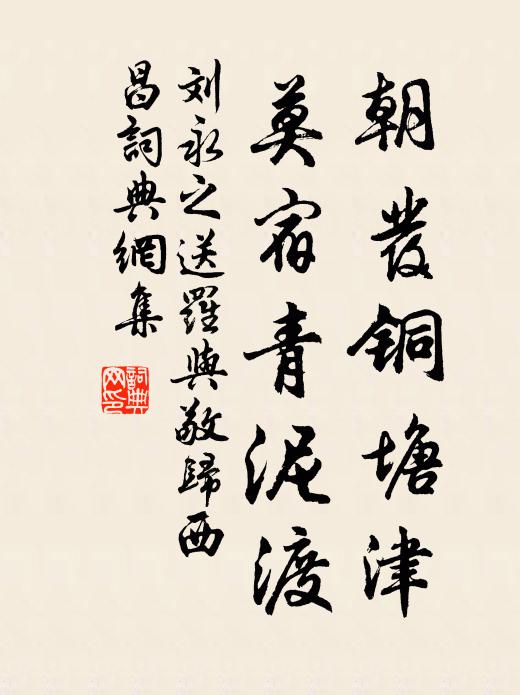 朝發铜塘津
莫宿青泥渡
刘永之送羅與敬歸西
昌詞典網集
詞典网印